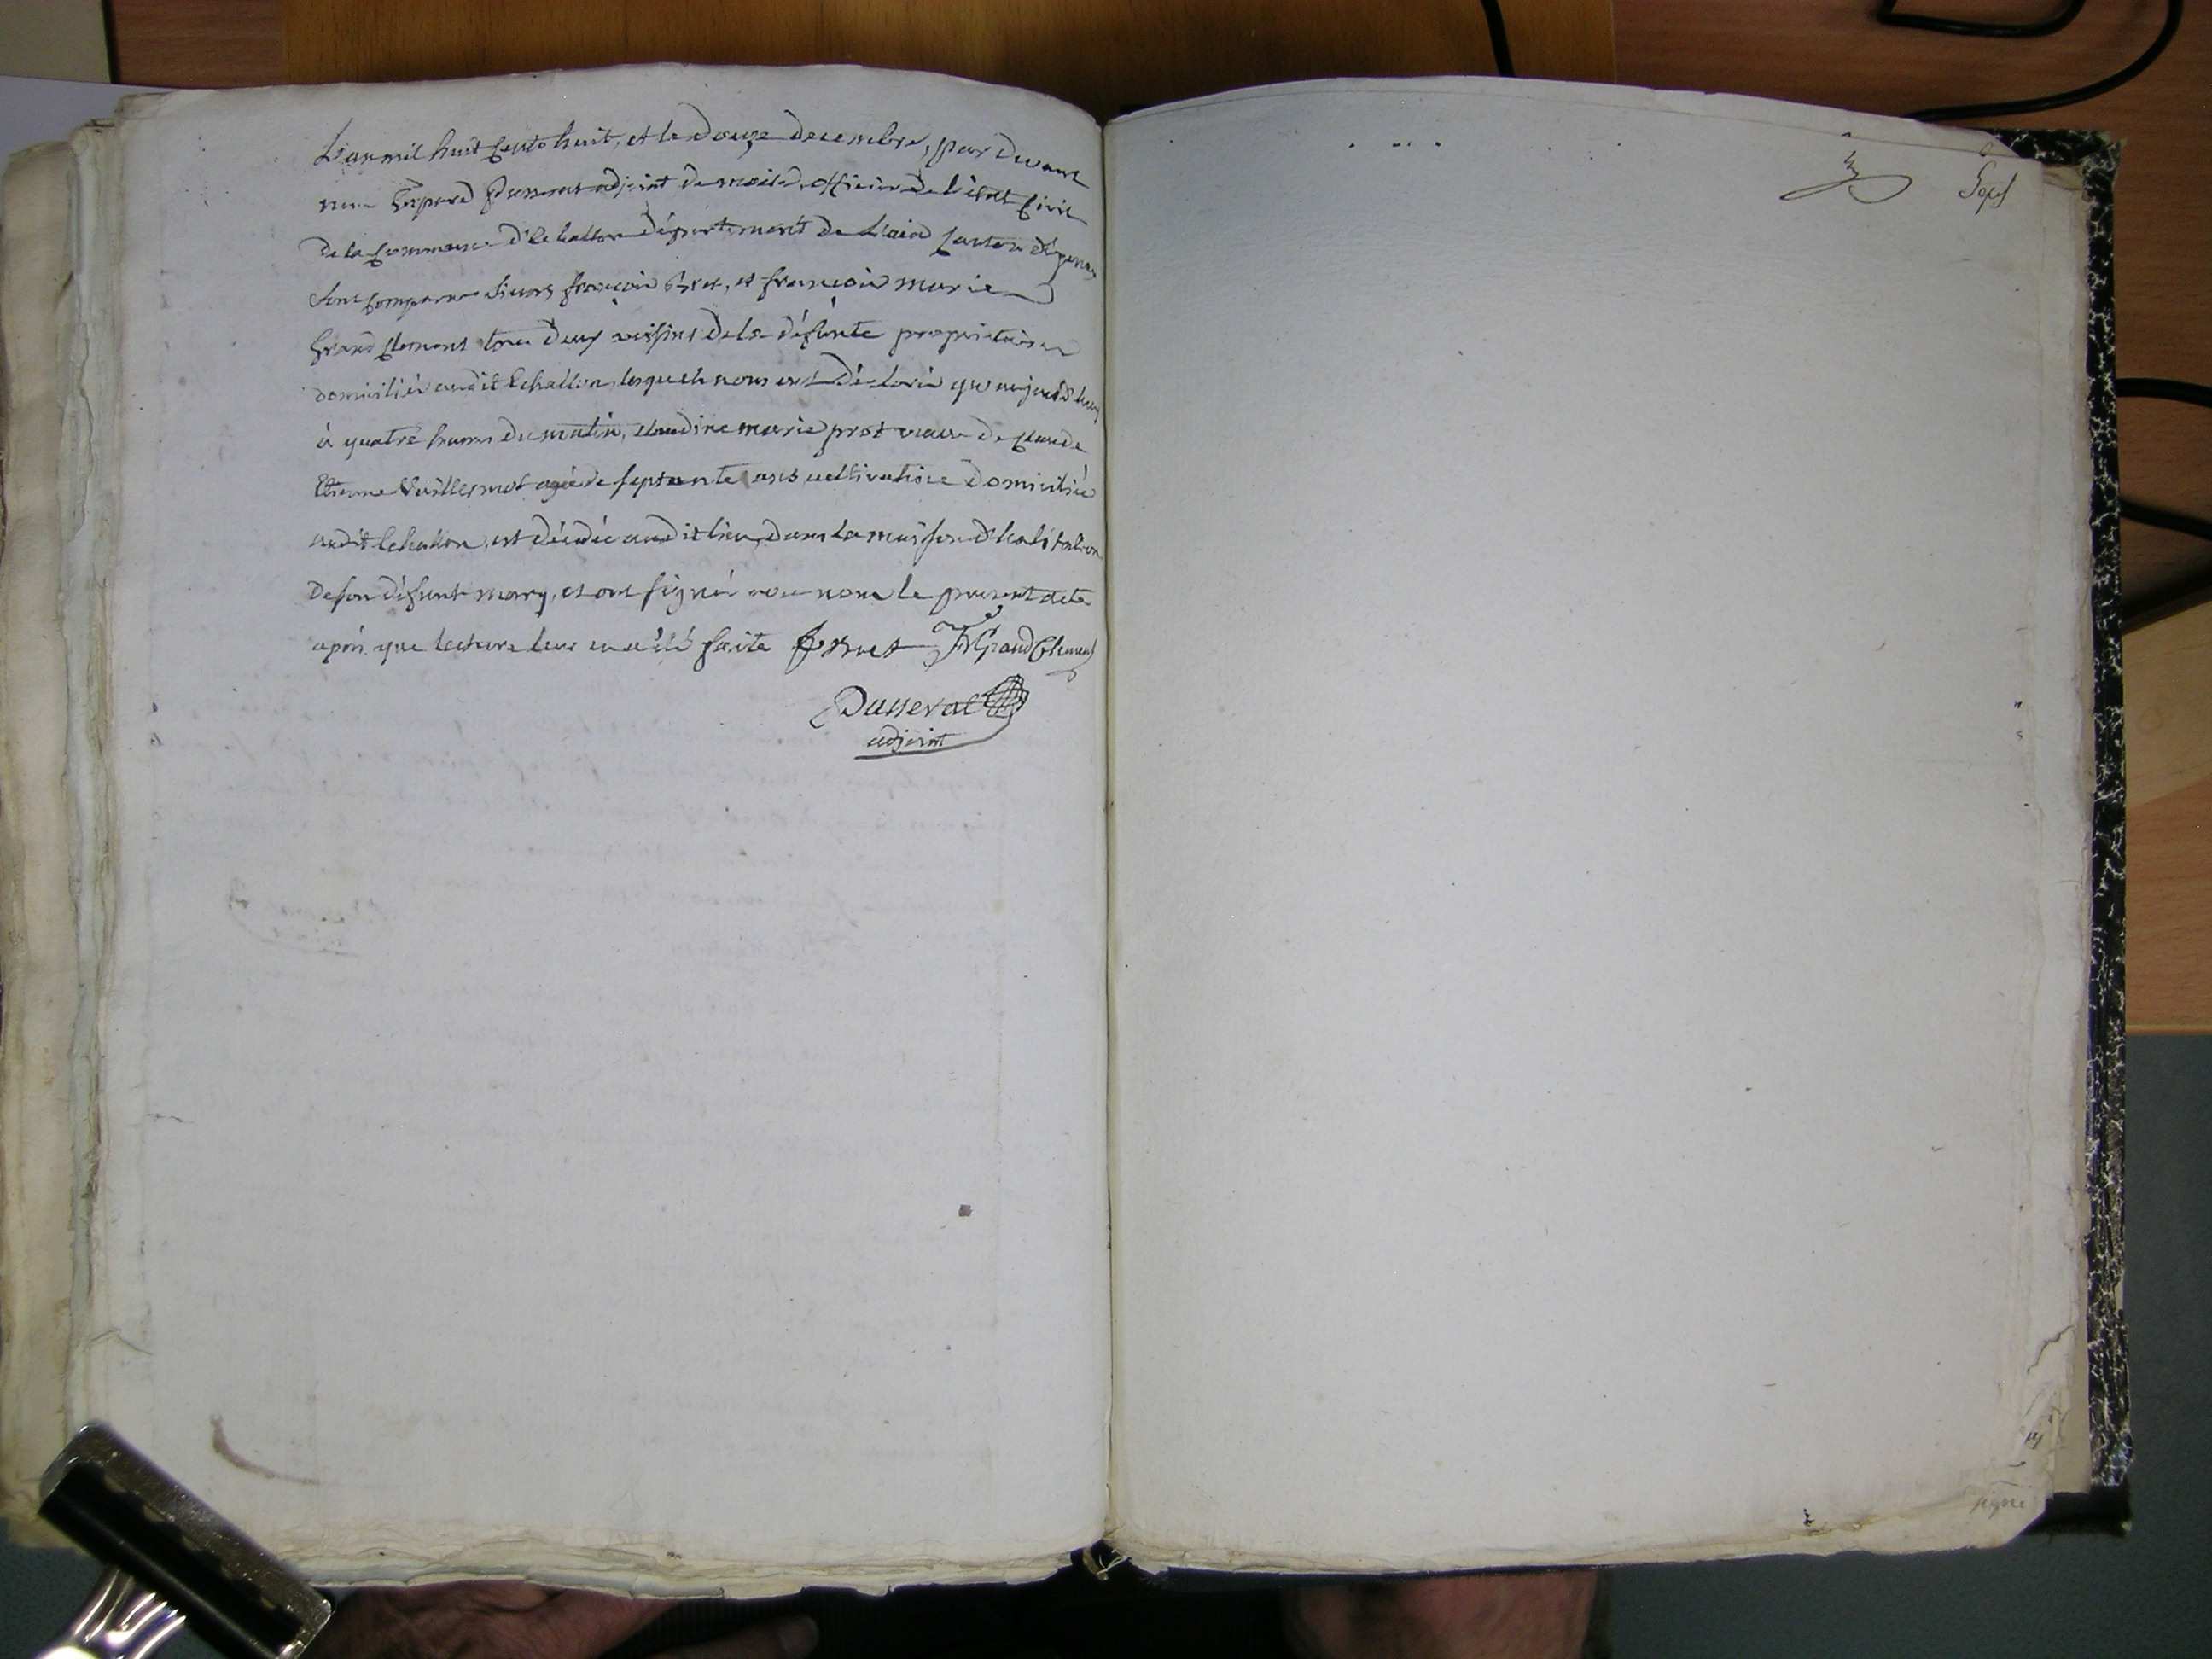 L'an mil huit cents huit, et le douze decembre, par devant
nous Gaspard Dusserval adjoint de maire, officier de l'état civil
de la commune d'Echallon département de L'ain canton d'
sont comparus sieurs françois Bret, et françois marie
Grand Clement tous deux voisins de la défunte proprietaires
domiciliés audit Echallon, lesquels nous ont déclaré qu'aujourd'huy
à quatre heures du matin, claudine marie prost veuve de claude
Etienne Vuillermot agée de septante ans cultivatrice domiciliée
audit Echallon, est décédée audit lieu, dans la maison d'habitation
de son défunt mary, et ont signé avec nous le present acte
après que lecture leur en a été faite f Bret F M GrandClement
Dusserval
adjoint
Sept
signé